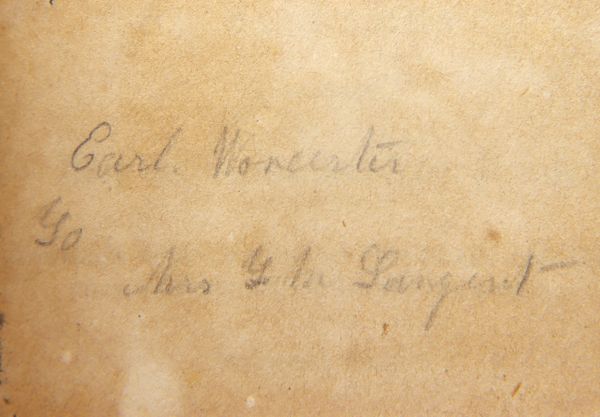 Earl. Worcester
To
Mrs G. W. Sargent